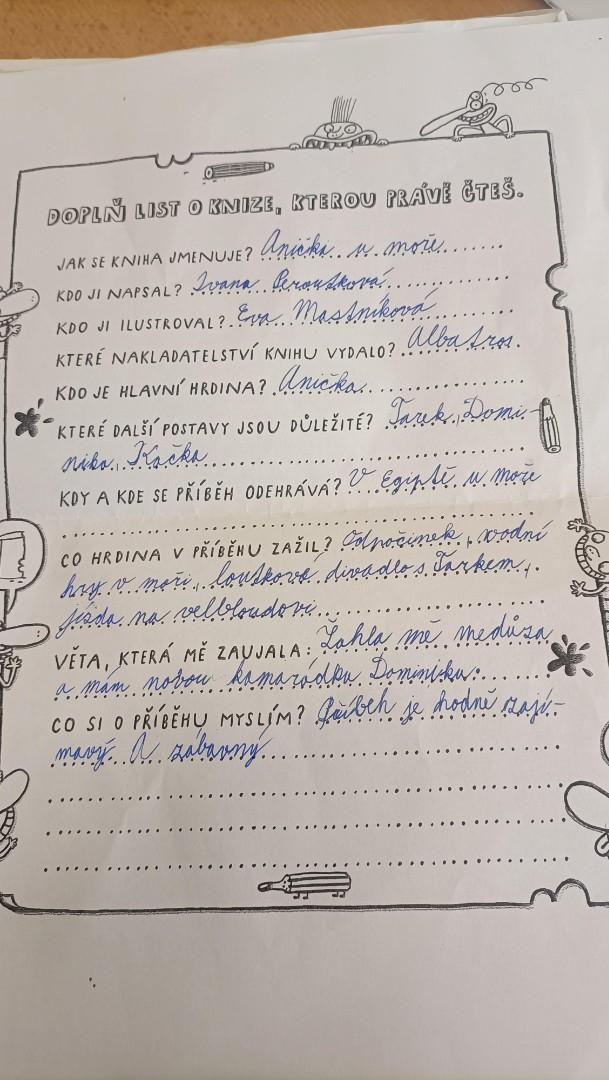 DOPLŇ LIST O KNIZE, KTEROU PRÁVĚ ČTEŠ.
JAK SE KNIHA JMENUJE? Anička u moře
KDO JI NAPSAL? Ivana Peroutková
KDO JI ILUSTROVAL? Eva Mastníková
KTERÉ NAKLADATELSTVÍ KNIHU VYDALO? Albatros.
KDO JE HLAVNÍ HRDINA? Anička
KTERÉ DALŠÍ POSTAVY JSOU DŮLEŽITÉ? Tarek, Domi-
nika, Kačka
KDY A KDE SE PŘÍBĚH ODEHRÁVÁ? V Egiptě u moře
CO HRDINA V PŘÍBĚHU ZAŽIL? Odpočinek, vodní
hry v moři, loutkové divadlo s Tarkem,
jízda na velbloudovi
VĚTA, KTERÁ MĚ ZAUJALA: Žahla mě medůza
a mám novou kamarádku Dominiku.
CO SI O PŘÍBĚHU MYSLÍM? Příbeh je hodně zají-
mavý. A zábavný